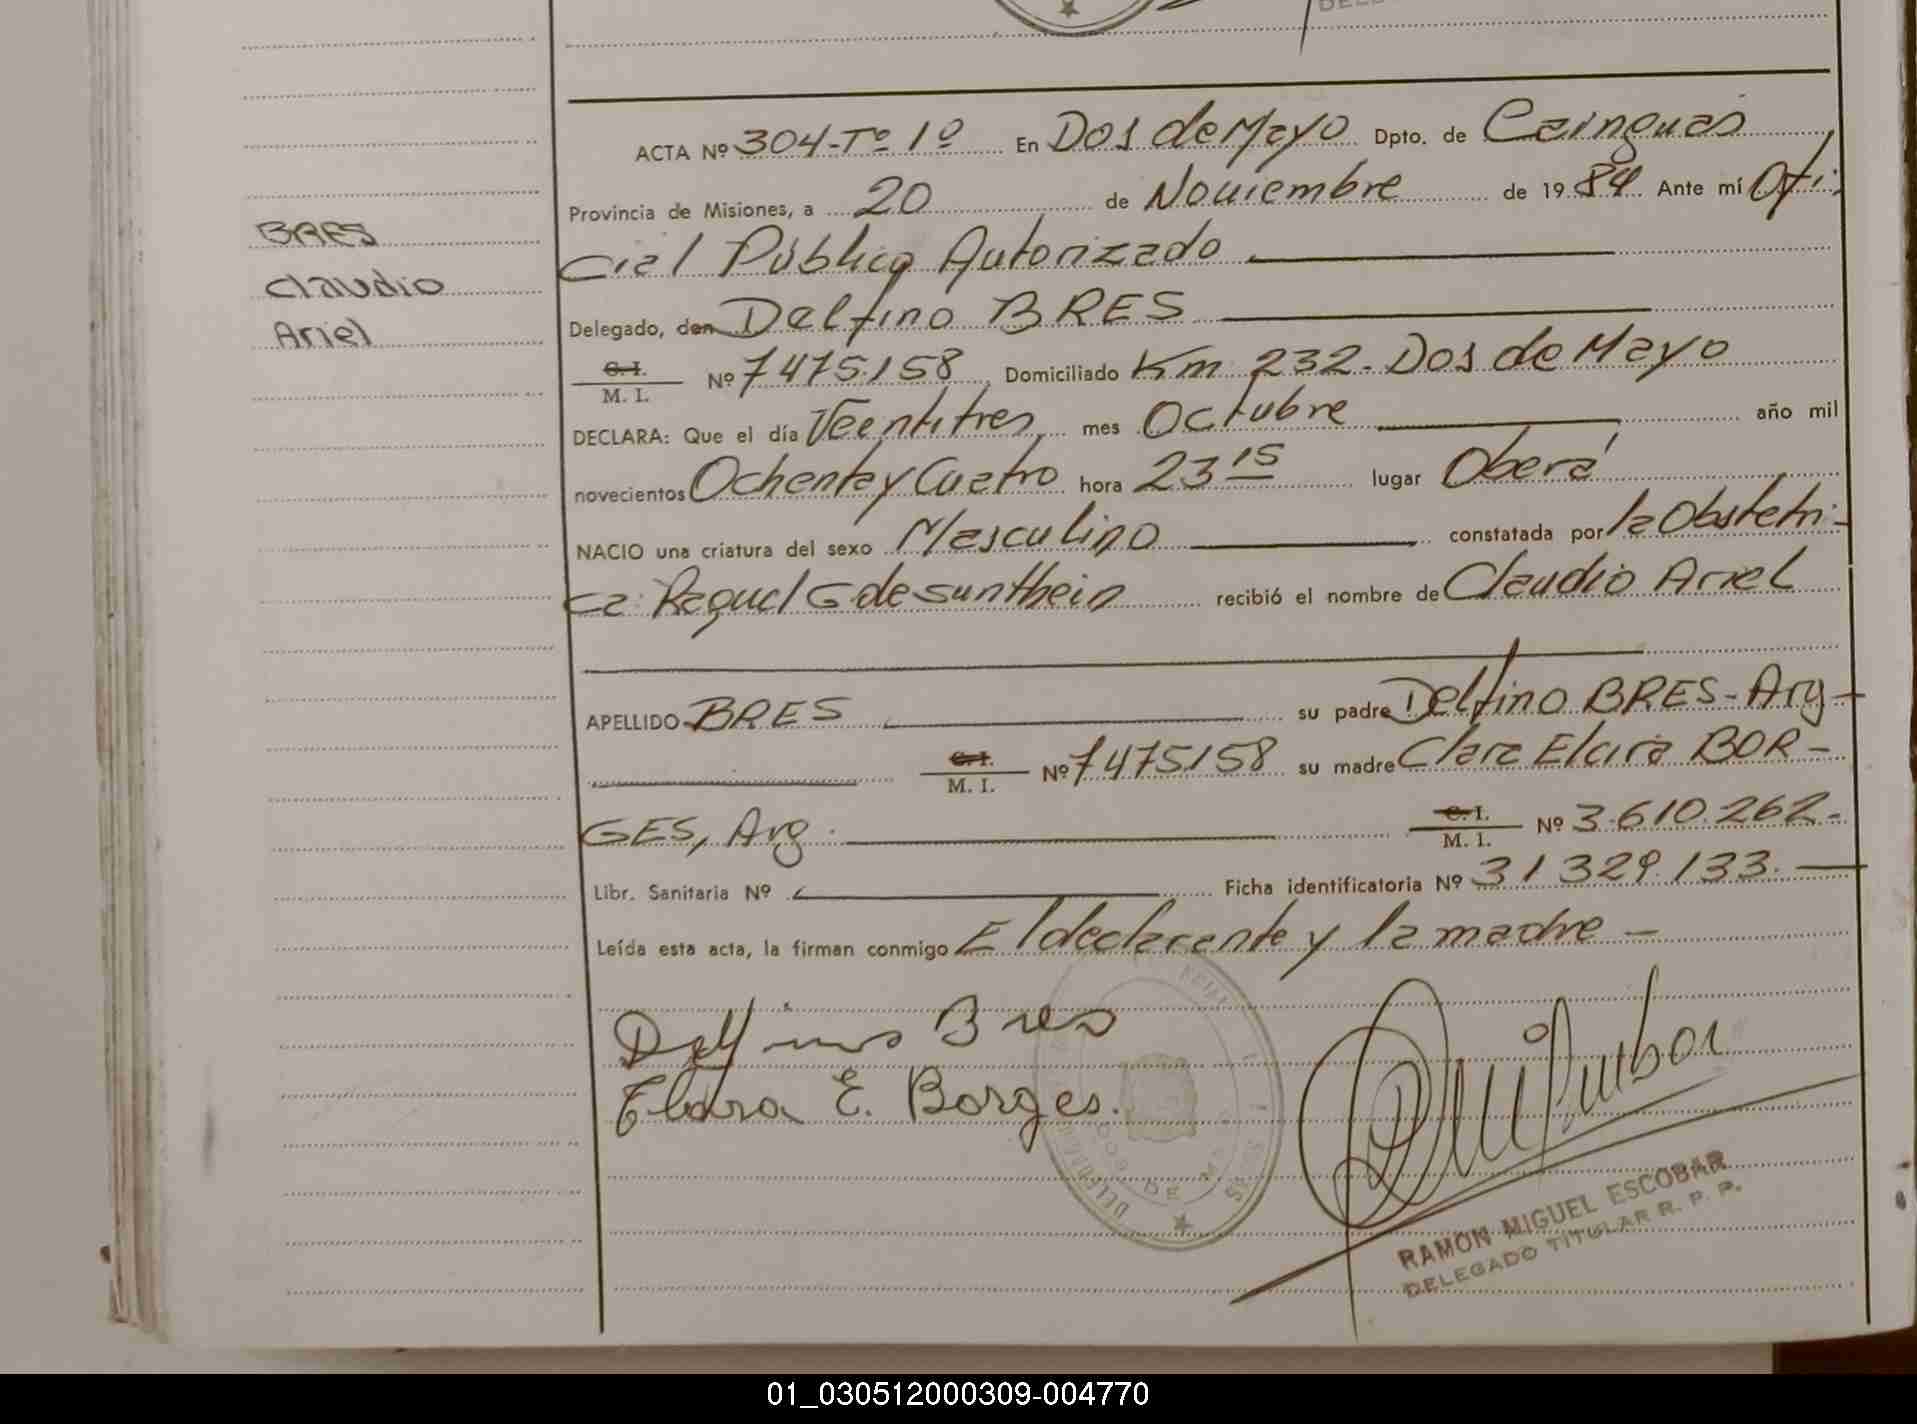 ACTA Nº 304-Tº 1º En Dos de Mayo Dpto. de Cainguas
Provincia de Misiones, a 20 de Noviembre de 1984 Ante mí Ofi-
cial Público Autorizado
Delegado, don Delfino BRES
C. I. / M. I. Nº 7475.158 Domiciliado Km 232. Dos de Mayo
DECLARA: Que el día Veentitres mes Octubre año mil
novecientos Ochenta y Cuatro hora 23 15 lugar Oberá
NACIO una criatura del sexo Masculino constatada por la Obstetri-
ca: Raquel G de sunthein recibió el nombre de Claudio Ariel
APELLIDO BRES su padre Delfino BRES-Arg-
C. I. / M. I. Nº 7475158 su madre Clara Elcira BOR-
GES, Arg. C. I. / M. I. Nº 3.610.262-
Libr. Sanitaria Nº Ficha identificatoria Nº 31329.133.
Leída esta acta, la firman conmigo El declarante y la madre -
BRES
Claudio
Ariel
Delfino Bres
Clara E. Borges.
DOS DE M
RAMON MIGUEL ESCOBAR
DELEGADO TITULAR R. P. P.
01_030512000309-004770